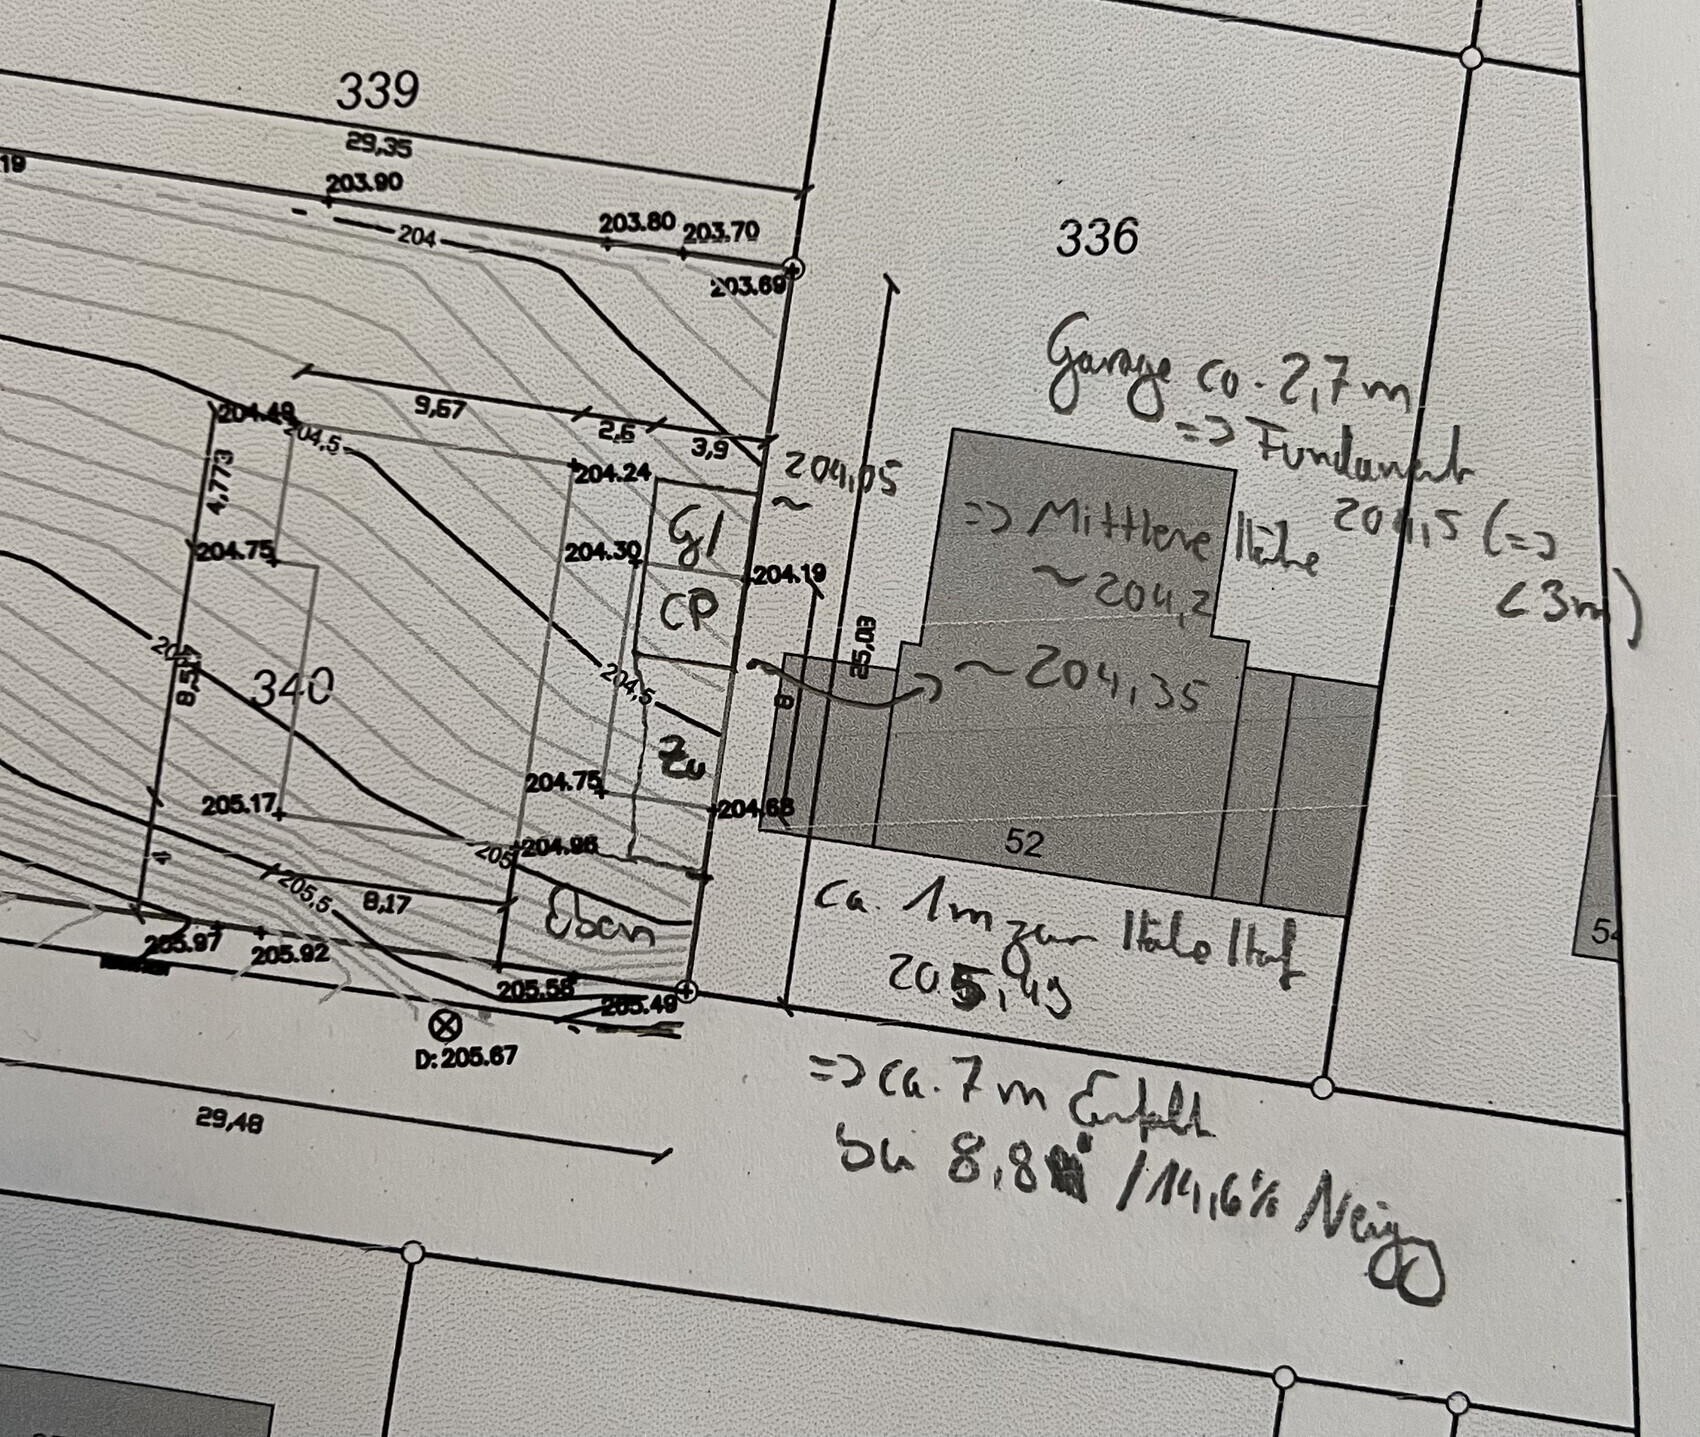 339
29,35
19
203.90
204
203.80
203.70
203.69
336
Garage ca. 2,7m
=> Fundament
204,5 (=>
<3m)
9,67
2,6
3,9
204.49
204,5
4,773
204.24
204,05
~
Gl
=> Mittlere Höhe
~ 204,2
204.75
204.30
204.19
CP
25,03
8
~ 204,35
340
204,5
Zu
204.75
204.68
205.17
204.96
205
52
54
4
205,5
8,17
Eben
ca. 1m zur Höhe Hof
205,49
205.97
205.92
205.58
205.49
D: 205.67
=> ca. 7m
29,48
bei 8,8 / 14,6% Neigg